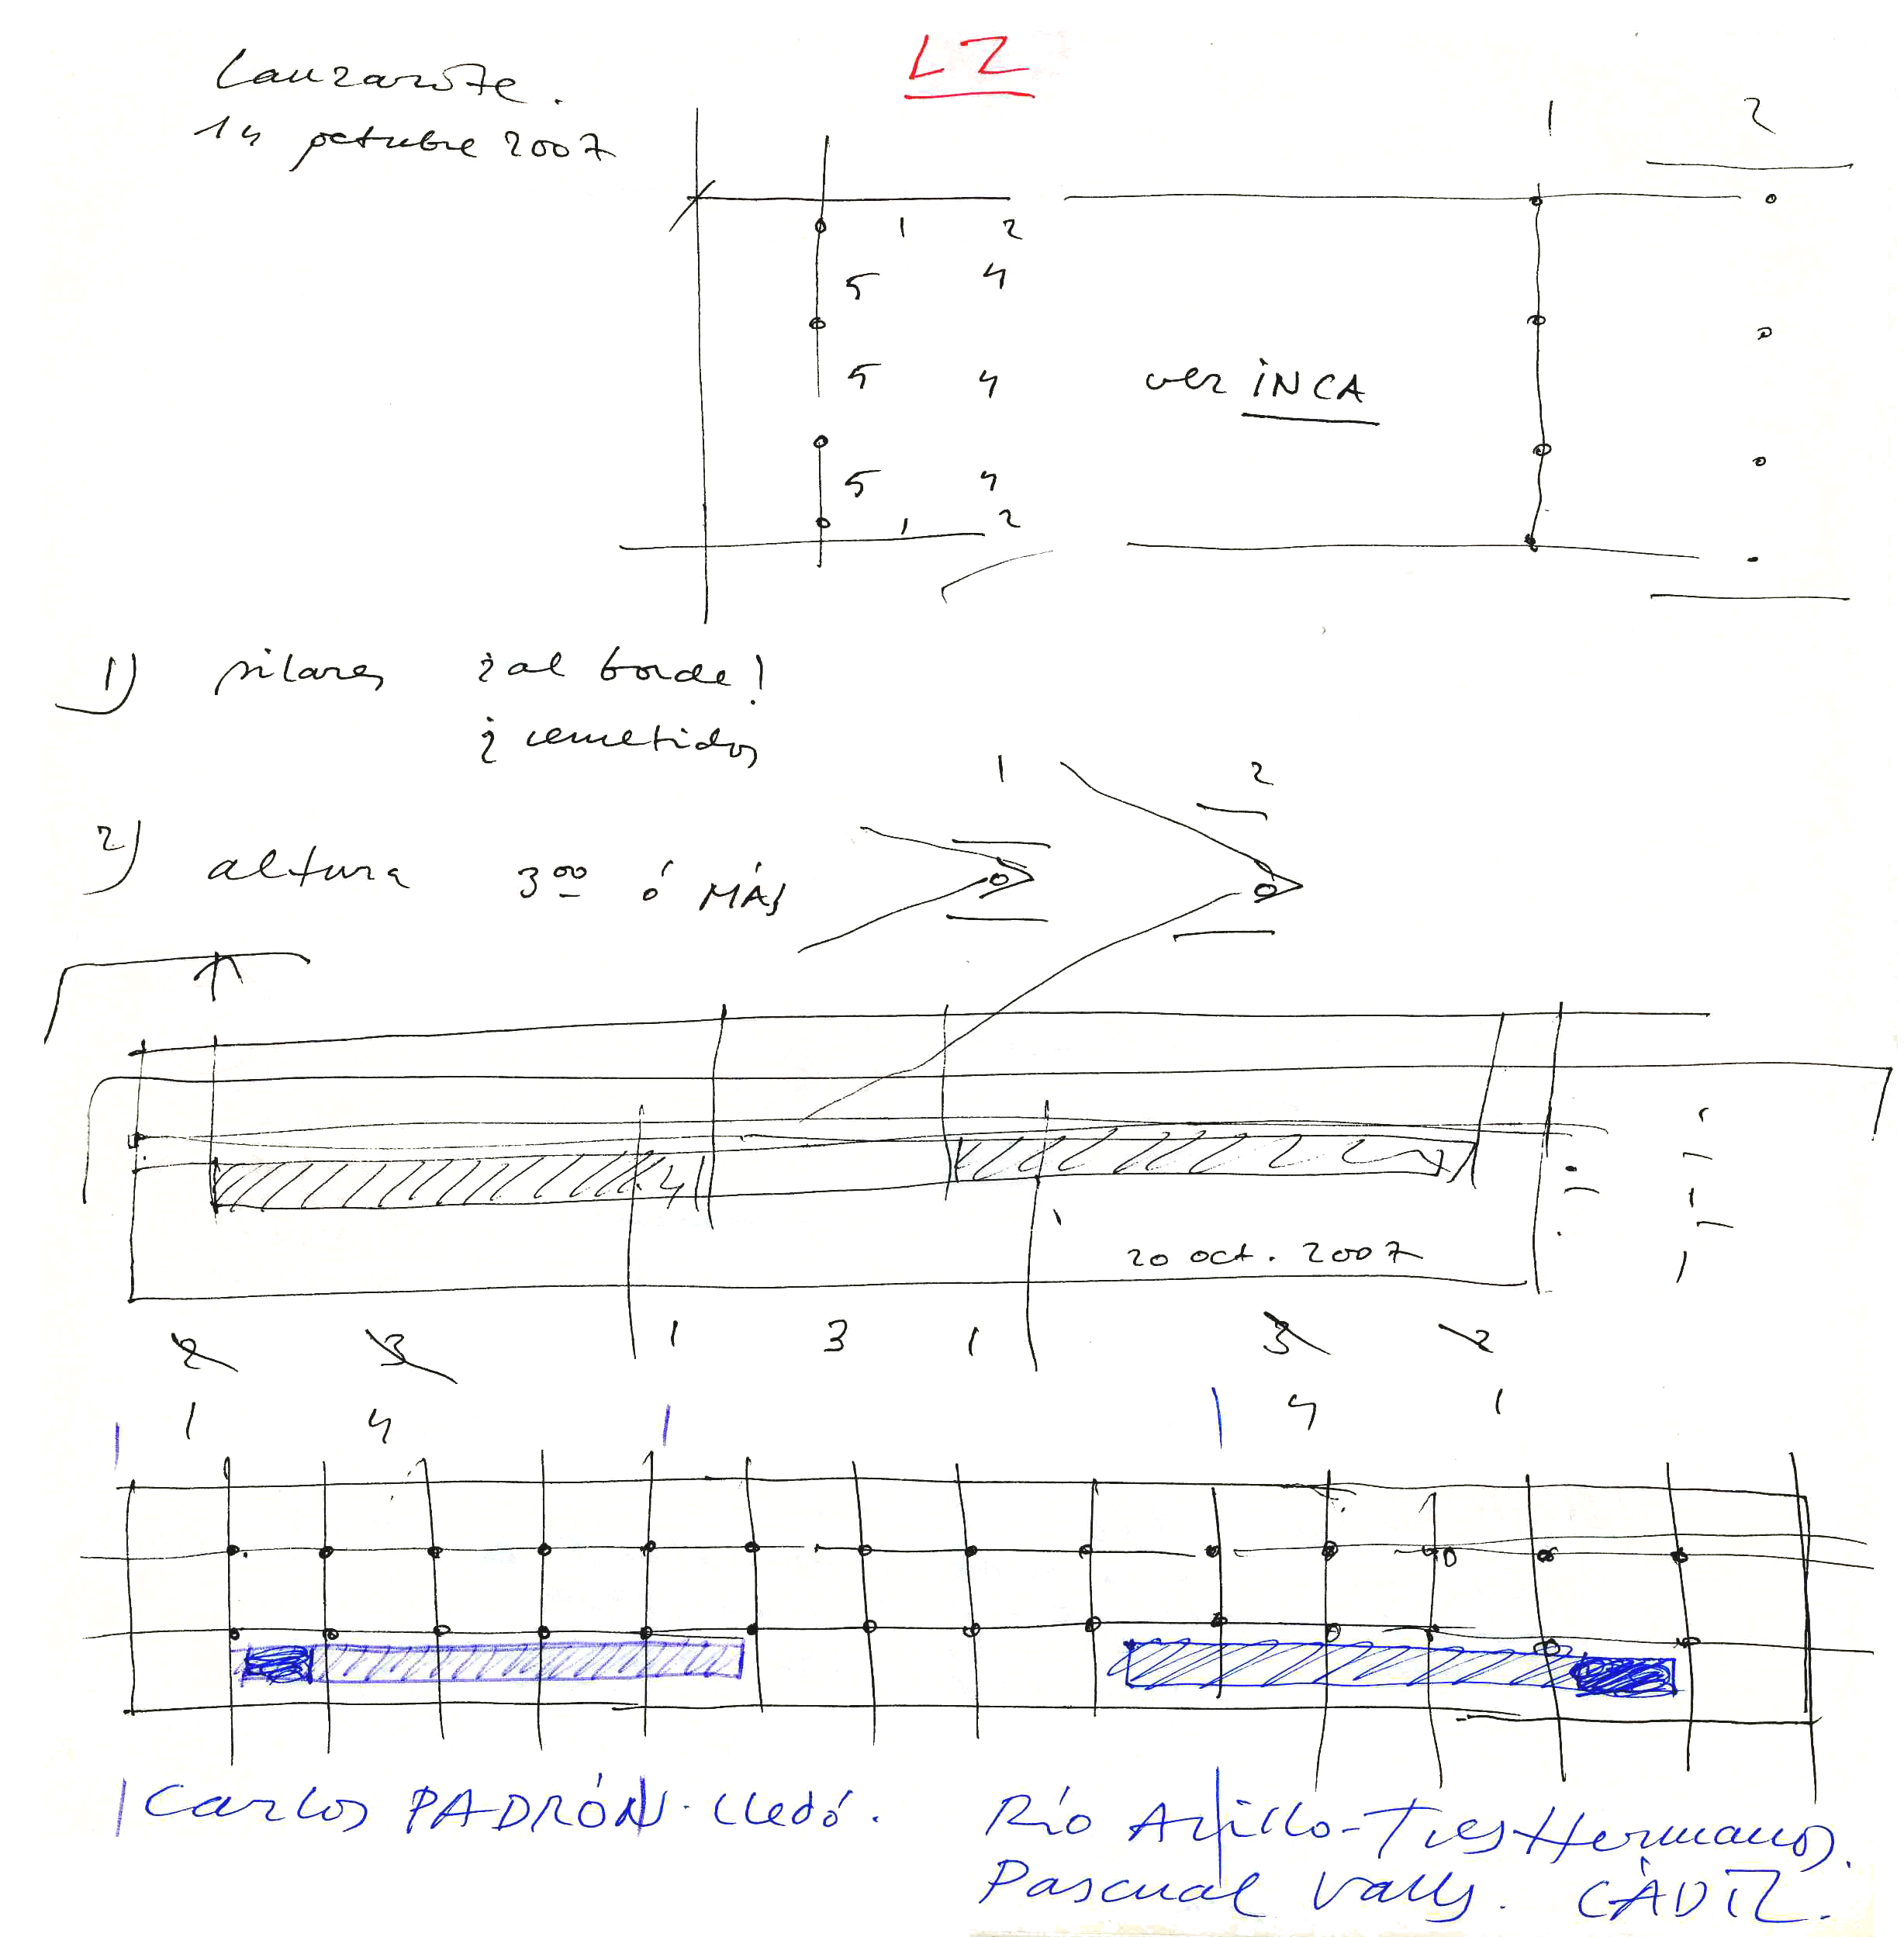 LZ
Lanzarote.
14 octubre 2007
1 2
1 2
5 4
5 4
ver INCA
5 4
1 2
1) pilares ¿al borde!
¿ remetidos
1 2
2) altura 3 00 ó MÁS
20 oct. 2007
2 3 1 3 1 3 2
1 4 4 1
Carlos PADRÓN. Lledó.
Río Arillo-Tres Hermanos.
Pascual Valls. CÁDIZ.